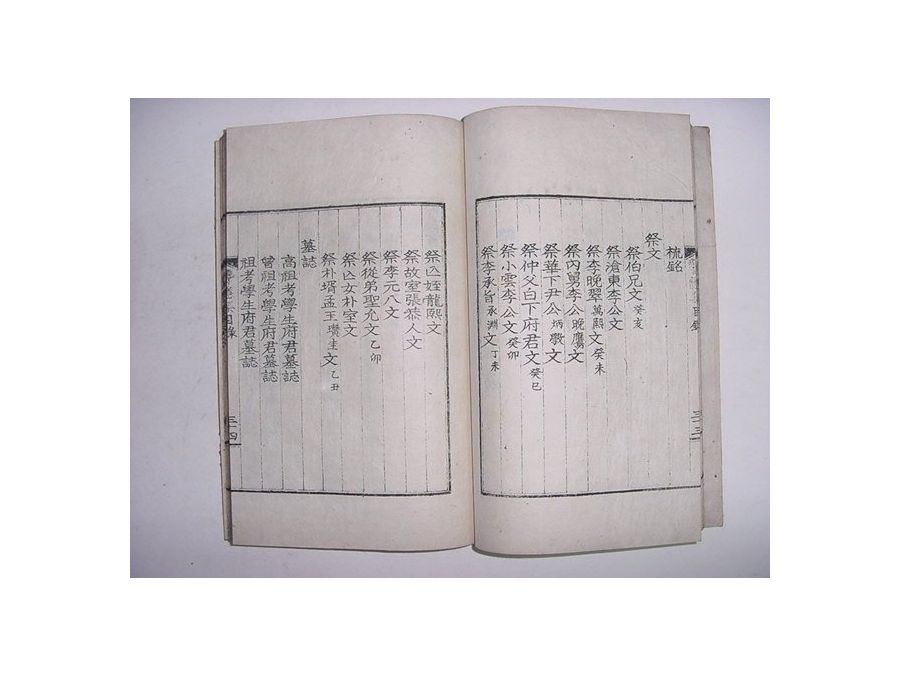 梳銘
祭文
祭伯兄文 癸亥
祭滄東李公文
祭李晩翠 萬熙 文 癸未
祭內舅李公 晩鷹 文
祭華下尹公 炳斅 文
祭仲父白下府君文 癸巳
祭小雲李公文 癸卯
祭李承旨 承淵 文 丁未
祭亾姪龍熙文
祭故室張恭人文
祭李元八文
祭從弟聖允文 乙卯
祭亾女朴室文
祭朴壻孟王 瓚圭 文 乙丑
墓誌
高祖考學生府君墓誌
曾祖考學生府君墓誌
祖考學生府君墓誌